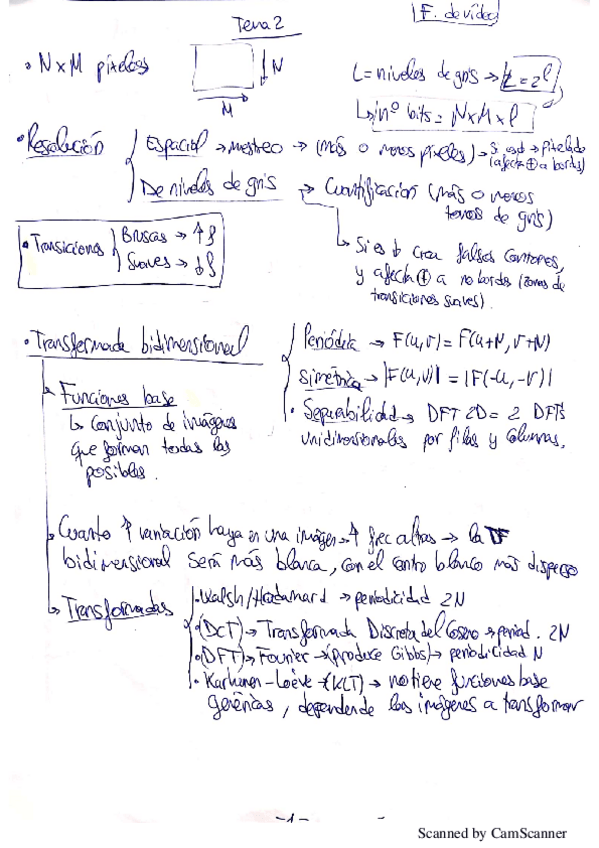 F. de vídeo
Tema 2
• N x M píxeles
N
M
L = niveles de gris → L = 2^l
nº bits = N x M x l
• Resolución
Espacial → muestreo → (más o menos píxeles) → Si es ↓ → pixelado
(afecta ⊕ a bordes)
De niveles de gris → Cuantificación (más o menos
tonos de gris)
Si es ↓ crea falsos contornos,
y afecta ⊕ a no bordes (zonas de
transiciones suaves).
• Transiciones
Bruscas → ↑ f
Suaves → ↓ f
• Transformada bidimensional
Periódica → F(u,v) = F(u+N, v+N)
Simétrica → |F(u,v)| = |F(-u,-v)|
• Separabilidad → DFT 2D = 2 DFTs
unidimensionales por filas y columnas.
Funciones base
↳ Conjunto de imágenes
que forman todas las
posibles.
Cuanto ↑ variación haya en una imagen → ↑ frec altas → la TF
bidimensional será más blanca, con el centro blanco más disperso
Transformadas
• Walsh/Hadamard → periodicidad 2N
• (DCT) → Transformada Discreta del Coseno → period. 2N
• (DFT) → Fourier → (produce Gibbs) → periodicidad N
• Karhunen-Loève → (KLT) → no tiene funciones base
genéricas, depende de las imágenes a transformar
-1-
Scanned by CamScanner